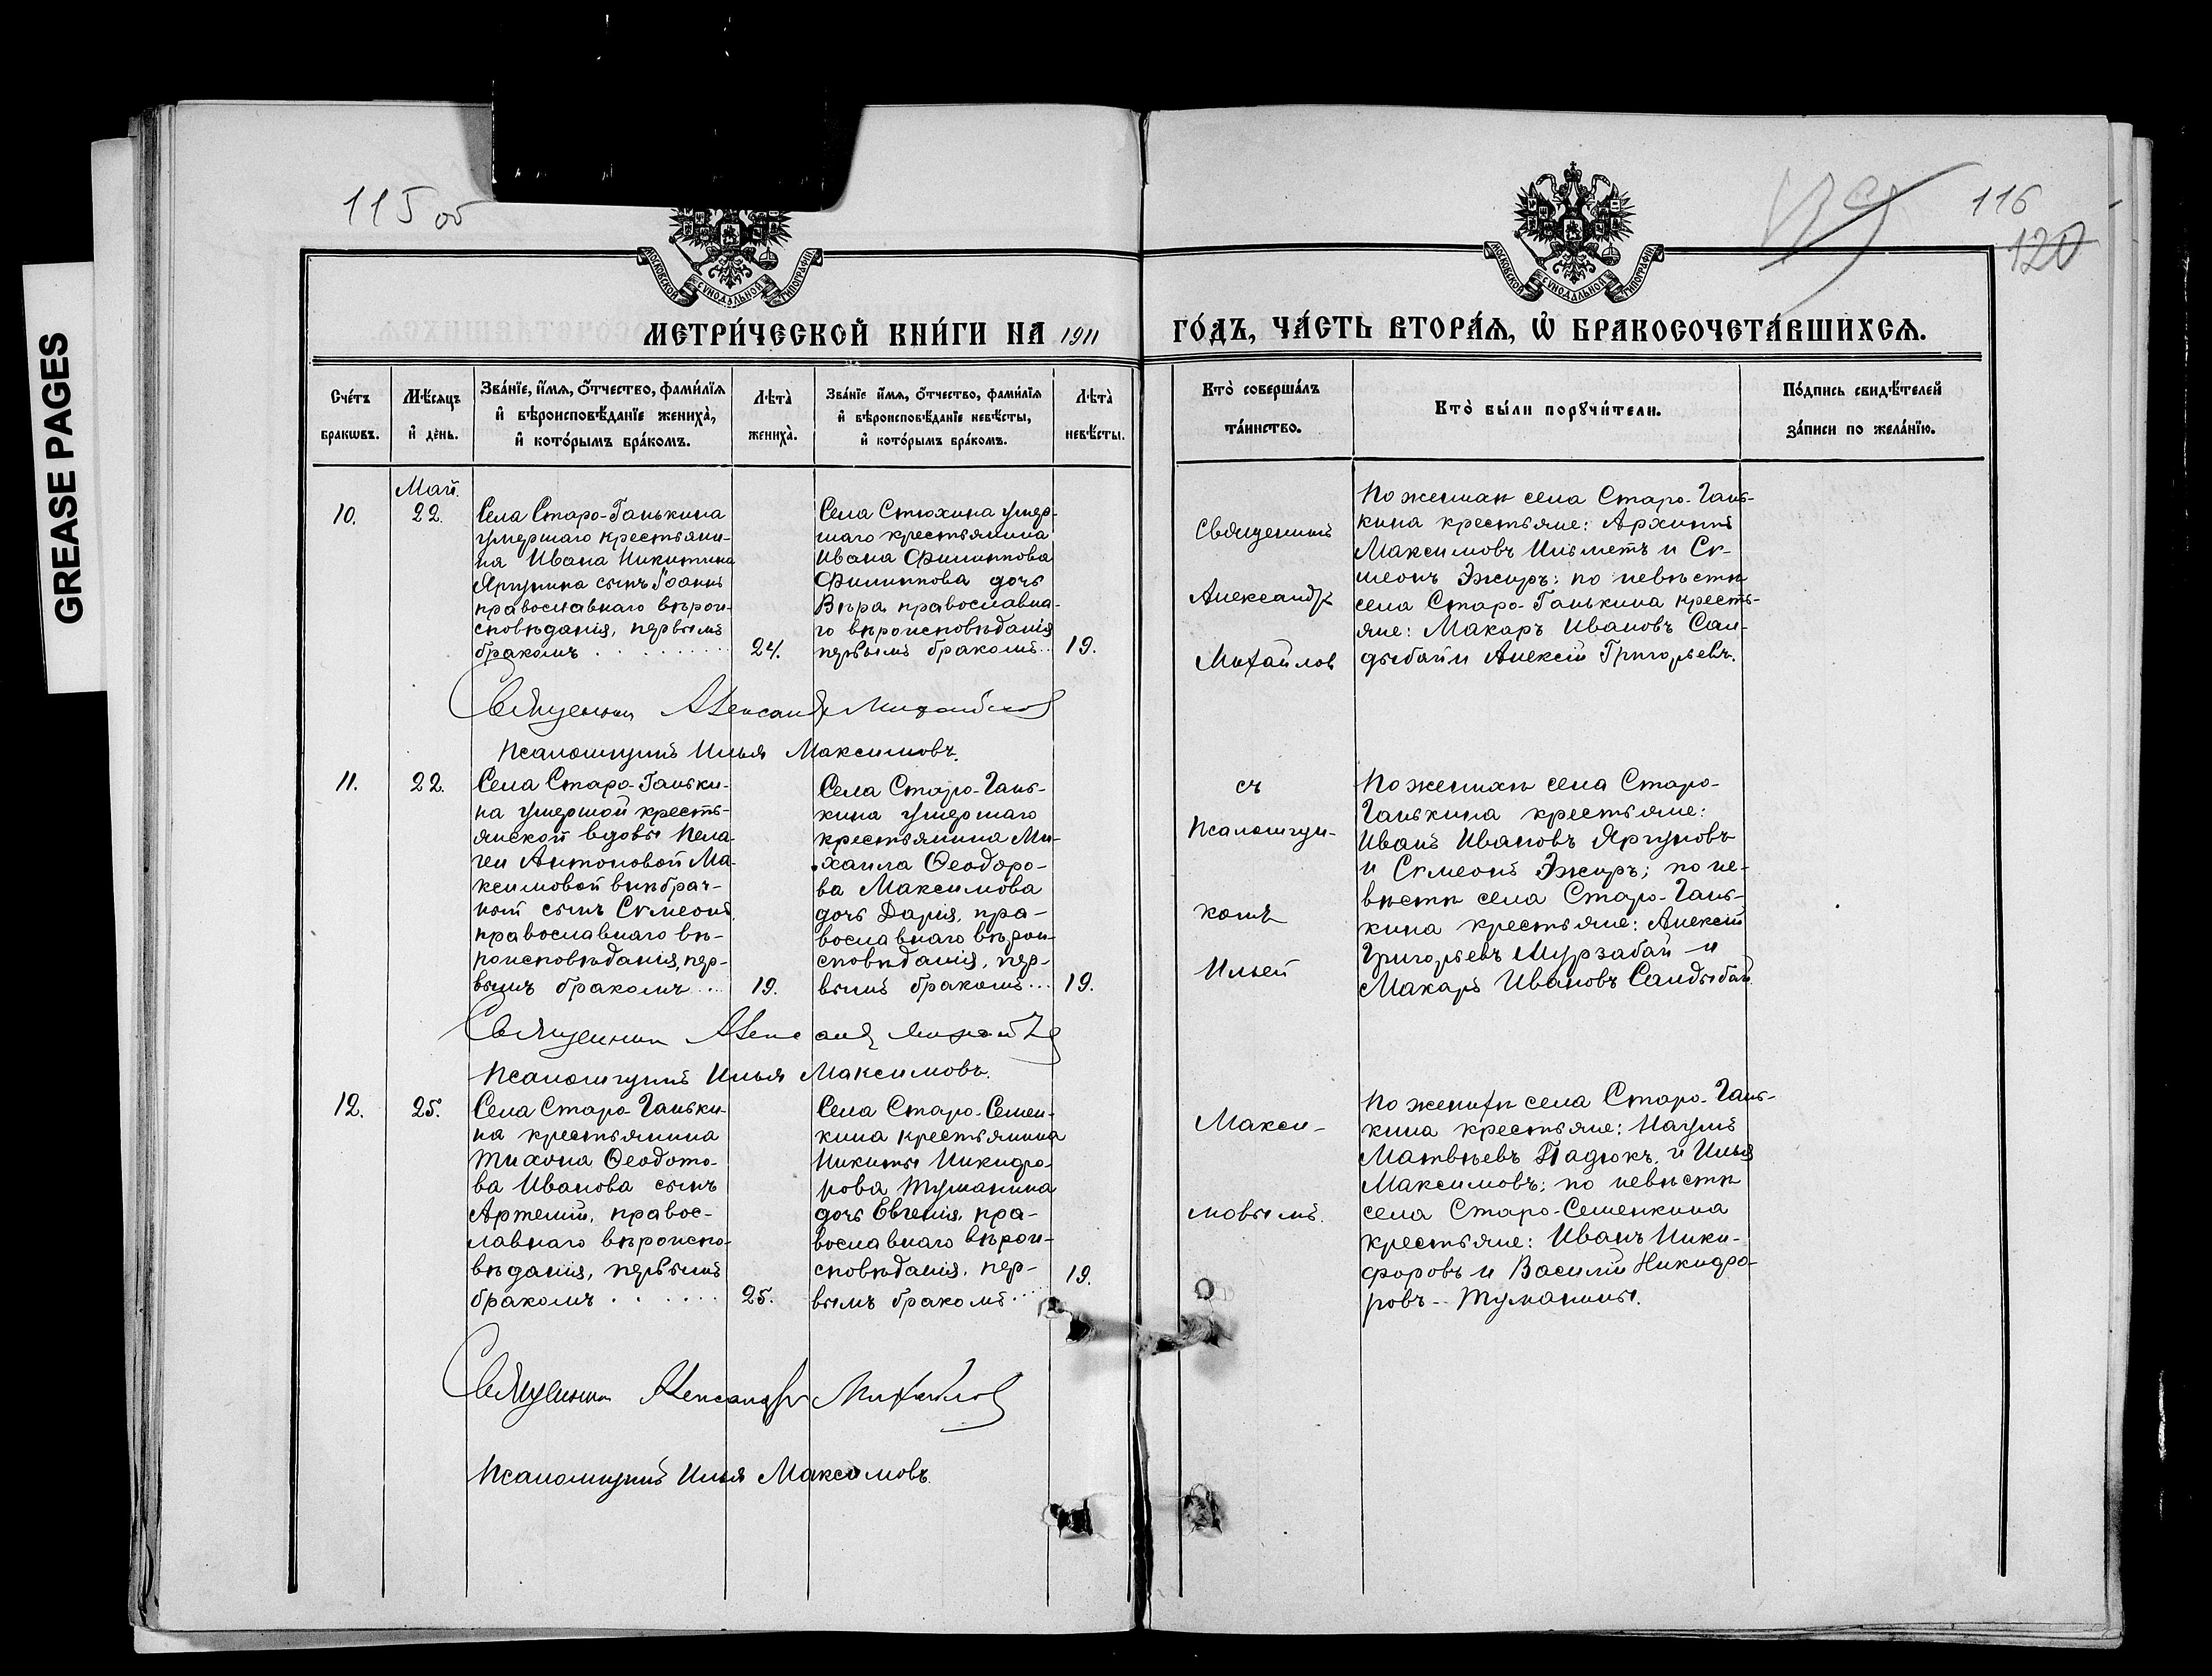 GREASE PAGES
115 об
116
120
МОСКОВСКОЙ СѴНОДАЛЬНОЙ ТИПОГРАФІИ
МОСКОВСКОЙ СѴНОДАЛЬНОЙ ТИПОГРАФІИ
МЕТРИ́ЧЕСКОЙ КНИ́ГИ НА 1911
ГО́ДЪ, ЧА́СТЬ ВТОРА́Я, Ѽ БРАКОСОЧЕТА́ВШИХСЯ.
Сче́тъ
бракѡвъ.
Мѣ́сяцъ
и҆ де́нь.
Зва́нїе, и҆́мя, ѻ҆́тчество, фами́лїя
и҆ вѣроисповѣ́данїе жениха̀,
и҆ кото́рымъ бра́комъ.
Лѣта̀
жениха̀.
Зва́нїе и҆́мя, ѻ҆́тчество, фами́лїя
и҆ вѣроисповѣ́данїе невѣ́сты,
и҆ кото́рымъ бра́комъ.
Лѣта̀
невѣ́сты.
Кто̀ соверша́лъ
та́инство.
Кто̀ бы́ли порꙋчи́тели.
По́дпись свидѣ́телей
за́писи по жела́нїю.
Май.
10.
22.
Села Старо-Ганькина
умершаго крестьяни-
на Ивана Никитина
Яргунина сынъ Іоаннъ
православнаго вѣрои-
сповѣданія, первымъ
бракомъ . . . . . . . .
24.
Села Стюхина умер-
шаго крестьянина
Ивана Филиппова
Филиппова дочь
Вѣра, православна-
го вѣроисповѣданія
первымъ бракомъ..
19.
Священникъ
Александръ
Михайлов
По жениху села Старо-Гань-
кина крестьяне: Архиппъ
Максимовъ Ильметъ и Си-
меонъ Эжиръ; по невѣстѣ
села Старо-Ганькина кресть-
яне: Макаръ Ивановъ Сан-
дыбай и Алексій Григорьевъ.
Священник Александр Михайлов
Псаломщикъ Илья Максимовъ.
11.
22.
Села Старо-Ганьки-
на умершой кресть-
янской вдовы Пела-
геи Антоновой Ма-
ксимовой внѣбрач-
ный сынъ Симеонъ,
православнаго вѣ-
роисповѣданія, пер-
вымъ бракомъ ...
19.
Села Старо-Гань-
кина умершаго
крестьянина Ми-
хаила Ѳеодоро-
ва Максимова
дочь Дарія, пра-
вославнаго вѣрои-
сповѣданія, пер-
вымъ бракомъ...
19.
съ
Псаломщи-
комъ
Ильей
По женихѣ села Старо-
Ганькина крестьяне:
Иванъ Ивановъ Яргуновъ
и Симеонъ Эжиръ; по не-
вѣстѣ села Старо-Гань-
кина крестьяне: Алексій
Григорьевъ Мурзабай и
Макаръ Ивановъ Сандыбай.
Священник Александр Михайлов
Псаломщикъ Илья Максимовъ.
12.
25.
Села Старо-Ганьки-
на крестьянина
Тихона Ѳеодото-
ва Иванова сынъ
Артемій, правос-
лавнаго вѣроиспо-
вѣданія, первымъ
бракомъ . . . . . .
25.
Села Старо-Семен-
кина крестьянина
Никиты Никифо-
рова Туманина
дочь Евгенія, пра-
вославнаго вѣрои-
сповѣданія, пер-
вымъ бракомъ ....
19.
Макси-
мовымъ.
По женихѣ села Старо-Гань-
кина крестьяне: Наумъ
Матвѣевъ Падюкъ и Илья
Максимовъ; по невѣстѣ
села Старо-Семенкина
крестьяне: Иванъ Ники-
форовъ и Василій Никифо-
ровъ - Туманины.
Священник Александръ Михайлов
Псаломщикъ Илья Максимовъ.